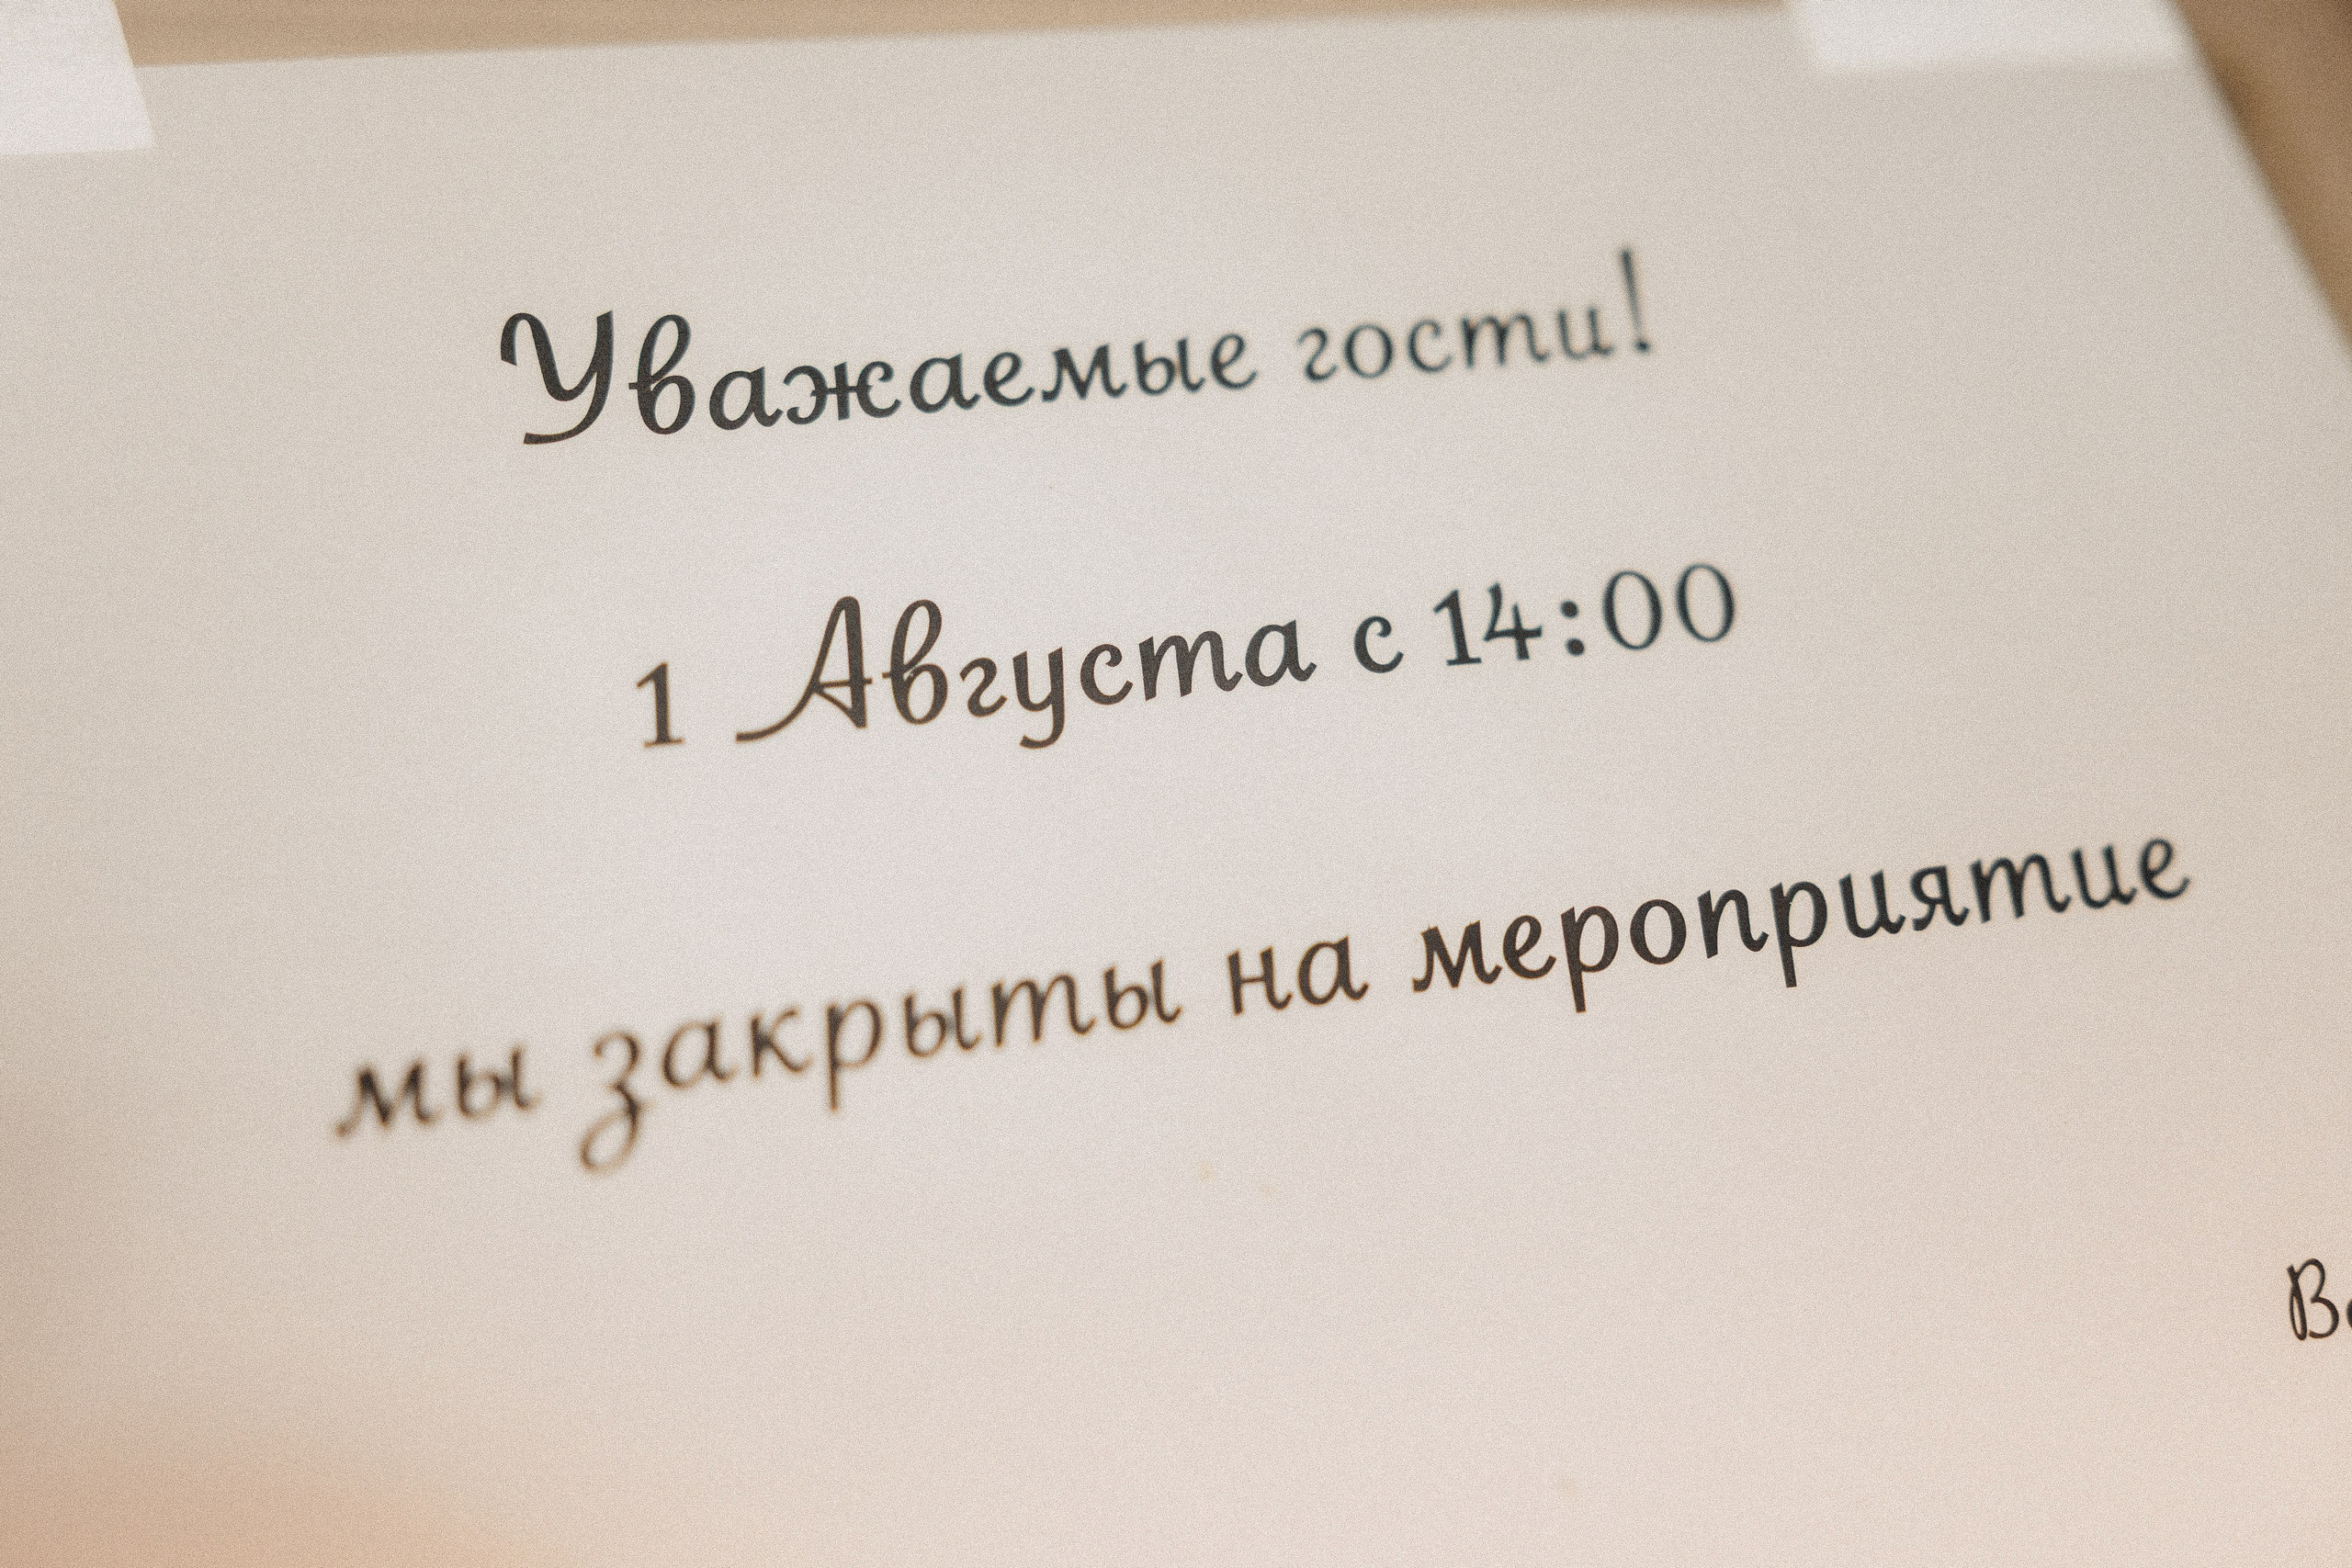 Уважаемые гости!
1 Августа с 14:00
мы закрыты на мероприятие